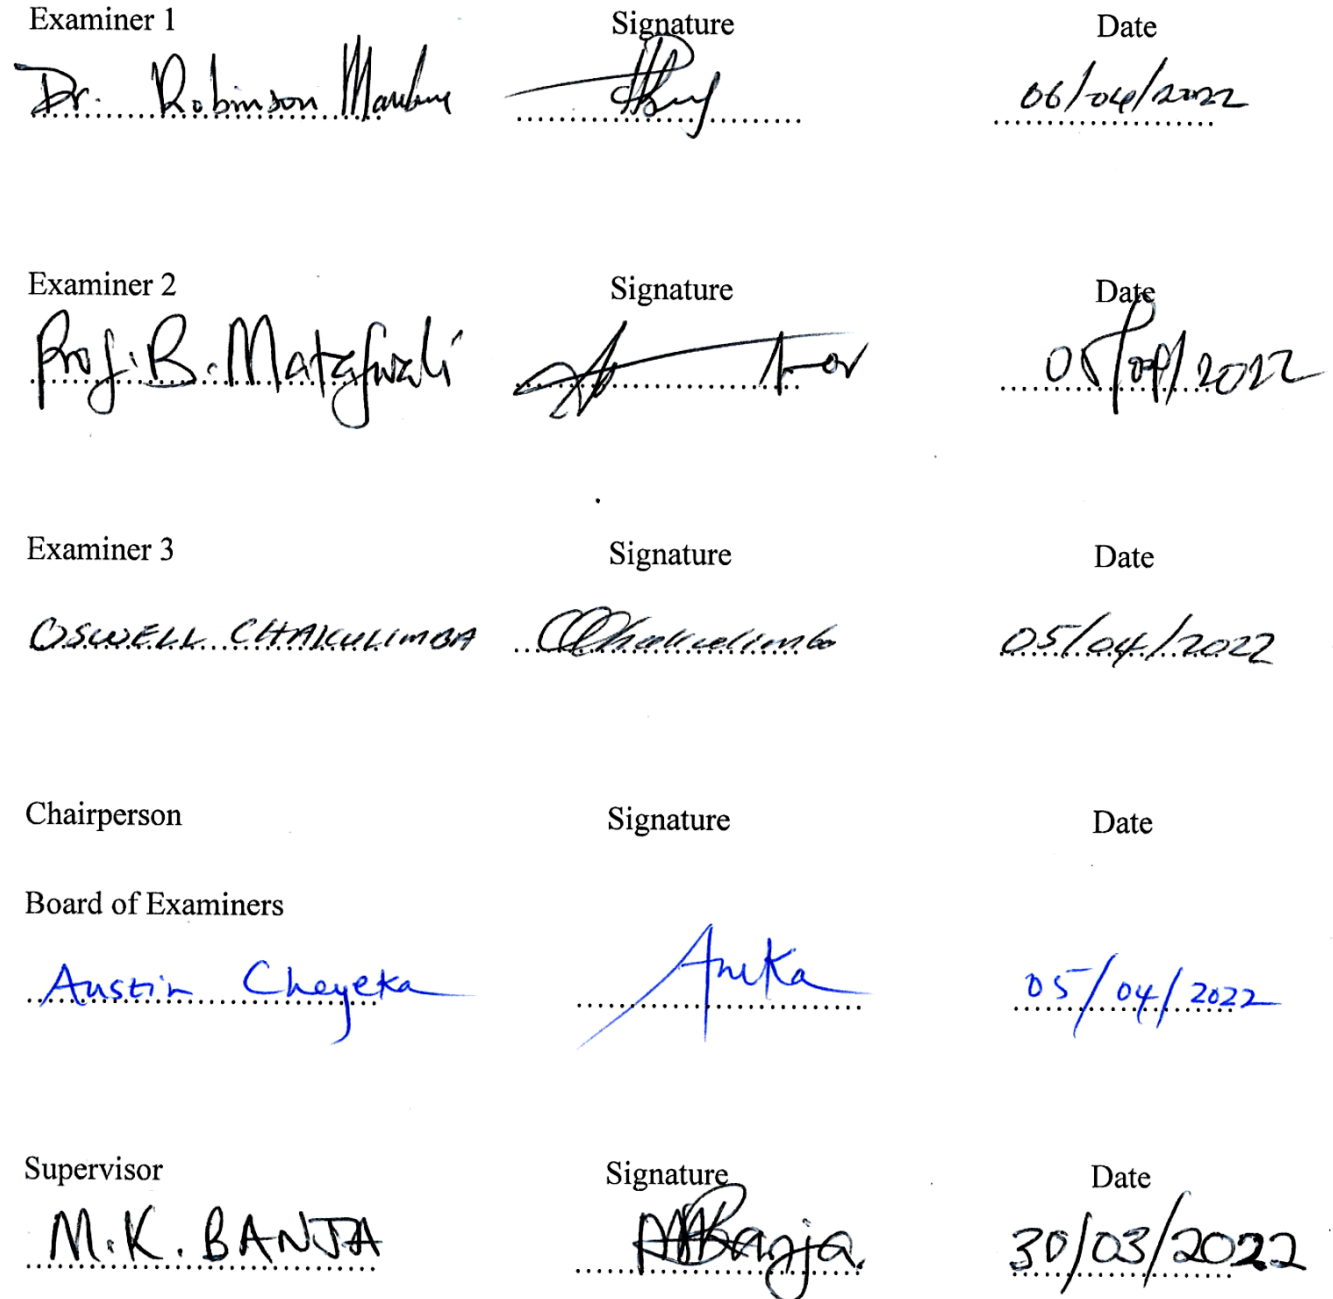 Examiner 1 Signature Date
Dr. Robinson 06/04/2022
Examiner 2 Signature Date
Prof. B. Matafwali 05/04/2022
Examiner 3 Signature Date
OSWELL CHAKULIMBA OChakulimba 05/04/2022
Chairperson Signature Date
Board of Examiners
Austin Cheyeka 05/04/2022
Supervisor Signature Date
M.K. BANJA Banja 30/03/2022